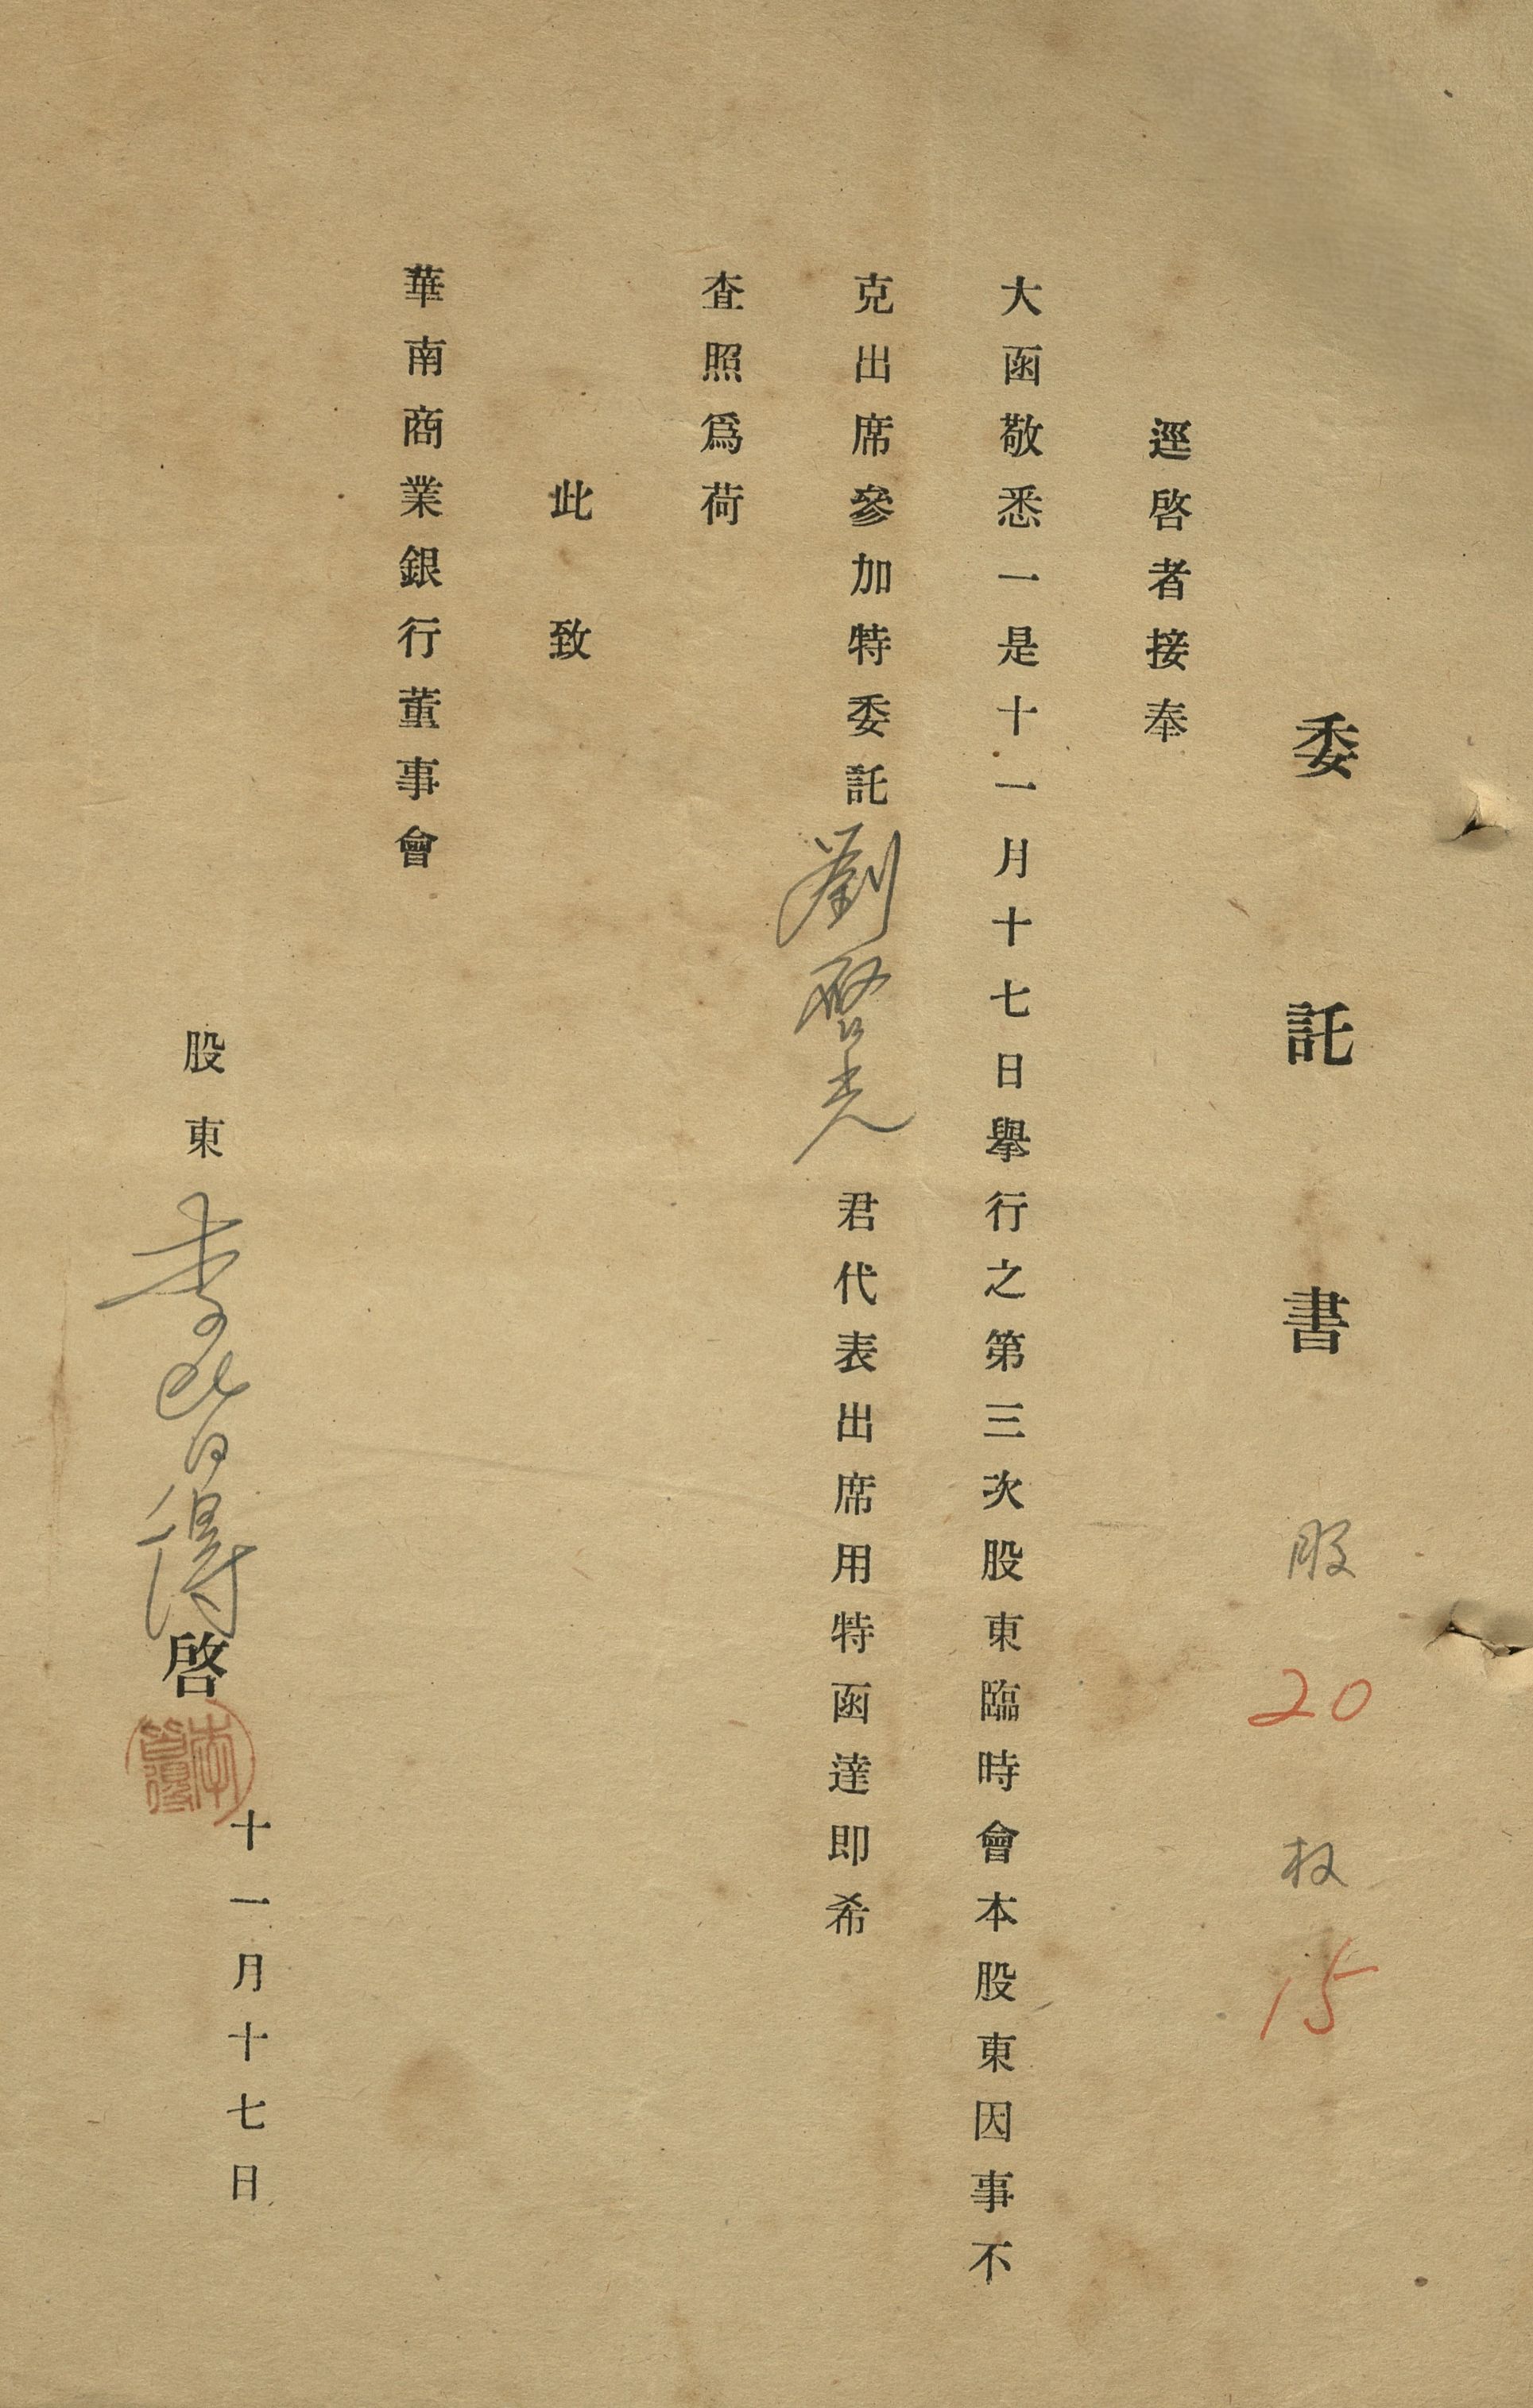 委託書 股 20 权 15
逕啓者接奉
大函敬悉一是十一月十七日舉行之第三次股東臨時會本股東因事不
克出席參加特委託劉啓光君代表出席用特函達即希
査照爲荷
此致
華南商業銀行董事會
十一月十七日
股東李皆得啓